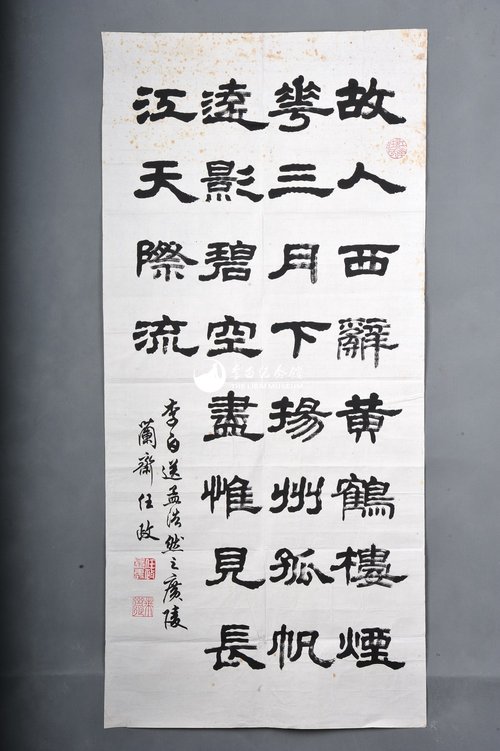 故人西辭黄鶴樓煙
花三月下揚州孤帆
遠影碧空盡惟見長
江天際流
李白送孟浩然之廣陵
蘭齋任政
李白纪念馆
THE LIBAI MUSEUM